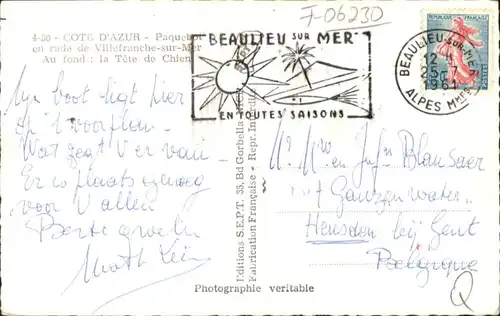 F-06230
4-50 - COTE D'AZUR - Paquebot
en rade de Villefranche-sur-Mer
Au fond : la Tête de Chien
BEAULIEU SUR MER
EN TOUTES SAISONS
BEAULIEU-SUR-MER
12 H
1961
ALPES MMES
REPUBLIQUE FRANÇAISE
Mijn boot ligt hier
op 't voorplan.
Wat zegt U er van
Er is plaats genoeg
voor U allen
Beste groeten
Editions S.E.P.T. 35, Bd Gorbella
Fabrication Française - Repr. Interdite
Mr Mw en Jufr
't Ganzenwater
Heusden bij Gent
Belgique
Photographie veritable
Q